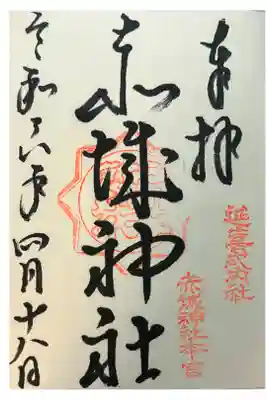 奉拝
延喜式内社
赤城神社本宮
赤城神社
令和六年四月十八日